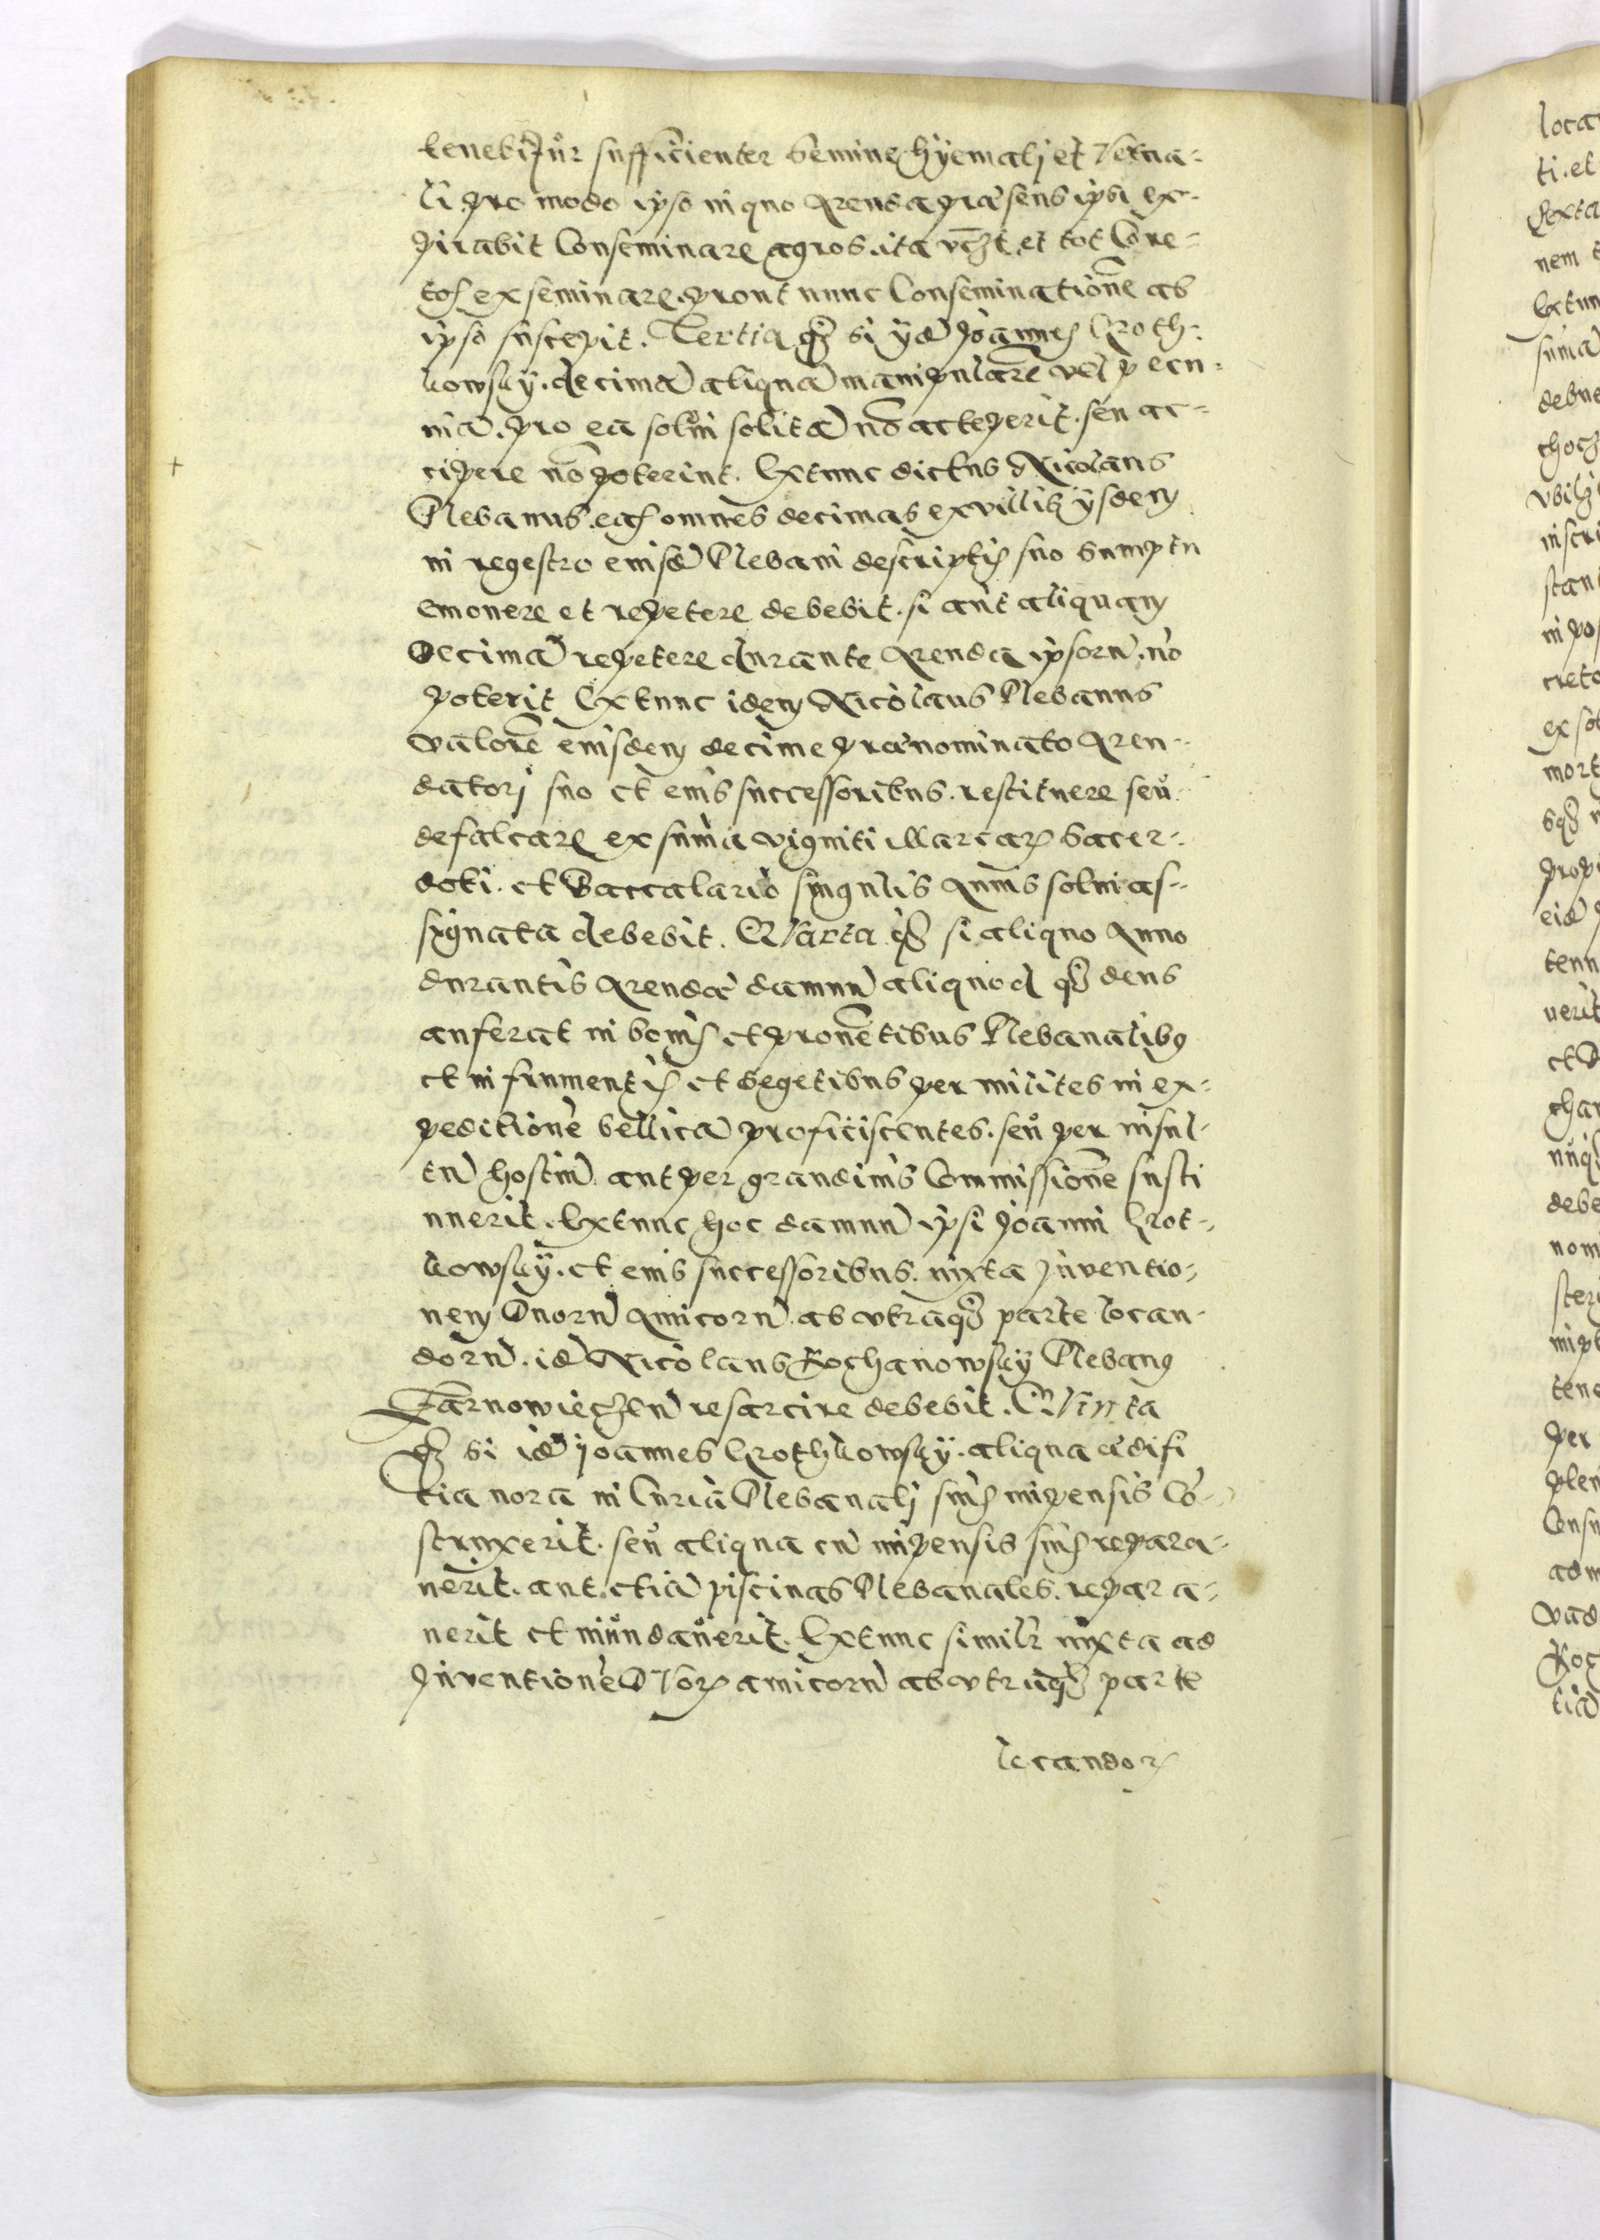 tenebitur sufficienter semine hyemalj et verna-
li pro modo ipso in quo Arenda præsens ipsi ex-
pirabit Conseminare agros. ita vʒt et tot Core-
tos exseminare. prout nunc Conseminationē ab
ipso suscepit. Tertia qʒ si ijdē Joannes Croth-
kowsky. decimā aliquā manipularē vel pecu-
niā. pro ea solui solitā nō acceperit. seu ac-
cipere nō poterint. Extunc dictus Nicolaus
Plebanus. eas omnes decimas ex villis ijsdem
in regestro eiusdē Plebani descriptis suo sumptu
emonere et repetere debebit. si aūt aliquam
Decimā repetere durante Arenda ipsorū. nō
poterit Extunc idem Nicolaus Plebanus
valorē eiusdem decime prænominato Aren-
datorj suo et eius successoribus. restituere seu
defalcare ex summa viginti Marcarum Sacer-
doti. et Baccalario singulis Annis solui as-
signata debebit. QVarta qʒ si aliquo Anno
durantis Arendæ damnū aliquod qʒ deus
auferat in bonis et prouētibus Plebanalibus
et in frumentis et segetibus per milites in ex-
peditionē bellicā proficiscentes. seu per insul-
tū hostiū aut per grandinis Commissionē susti
nuerit. Extunc hoc damnū ipsi Joanni Crot-
kowsky. et eius successoribus. iuxta Inventio-
nem Dnorū Amicorū ab utraqʒ parte locan-
dorū. idē Nicolaus Kochanowsky Plebanus
Jarnowieczen̄ resarcire debebit. QVinta
qʒ si idē Joannes Crothkowsky. aliqua ædifi
tia noua in Curia Plebanalj suis inpensis Cō-
struxerit. seu aliqua cū inpensis suis repara-
uerit. aut etiā piscinas Plebanales. repara-
uerit et mundauerit. Extunc similr iuxta ad
Inventionē DNorum amicorū ab utraqʒ parte
locandorum